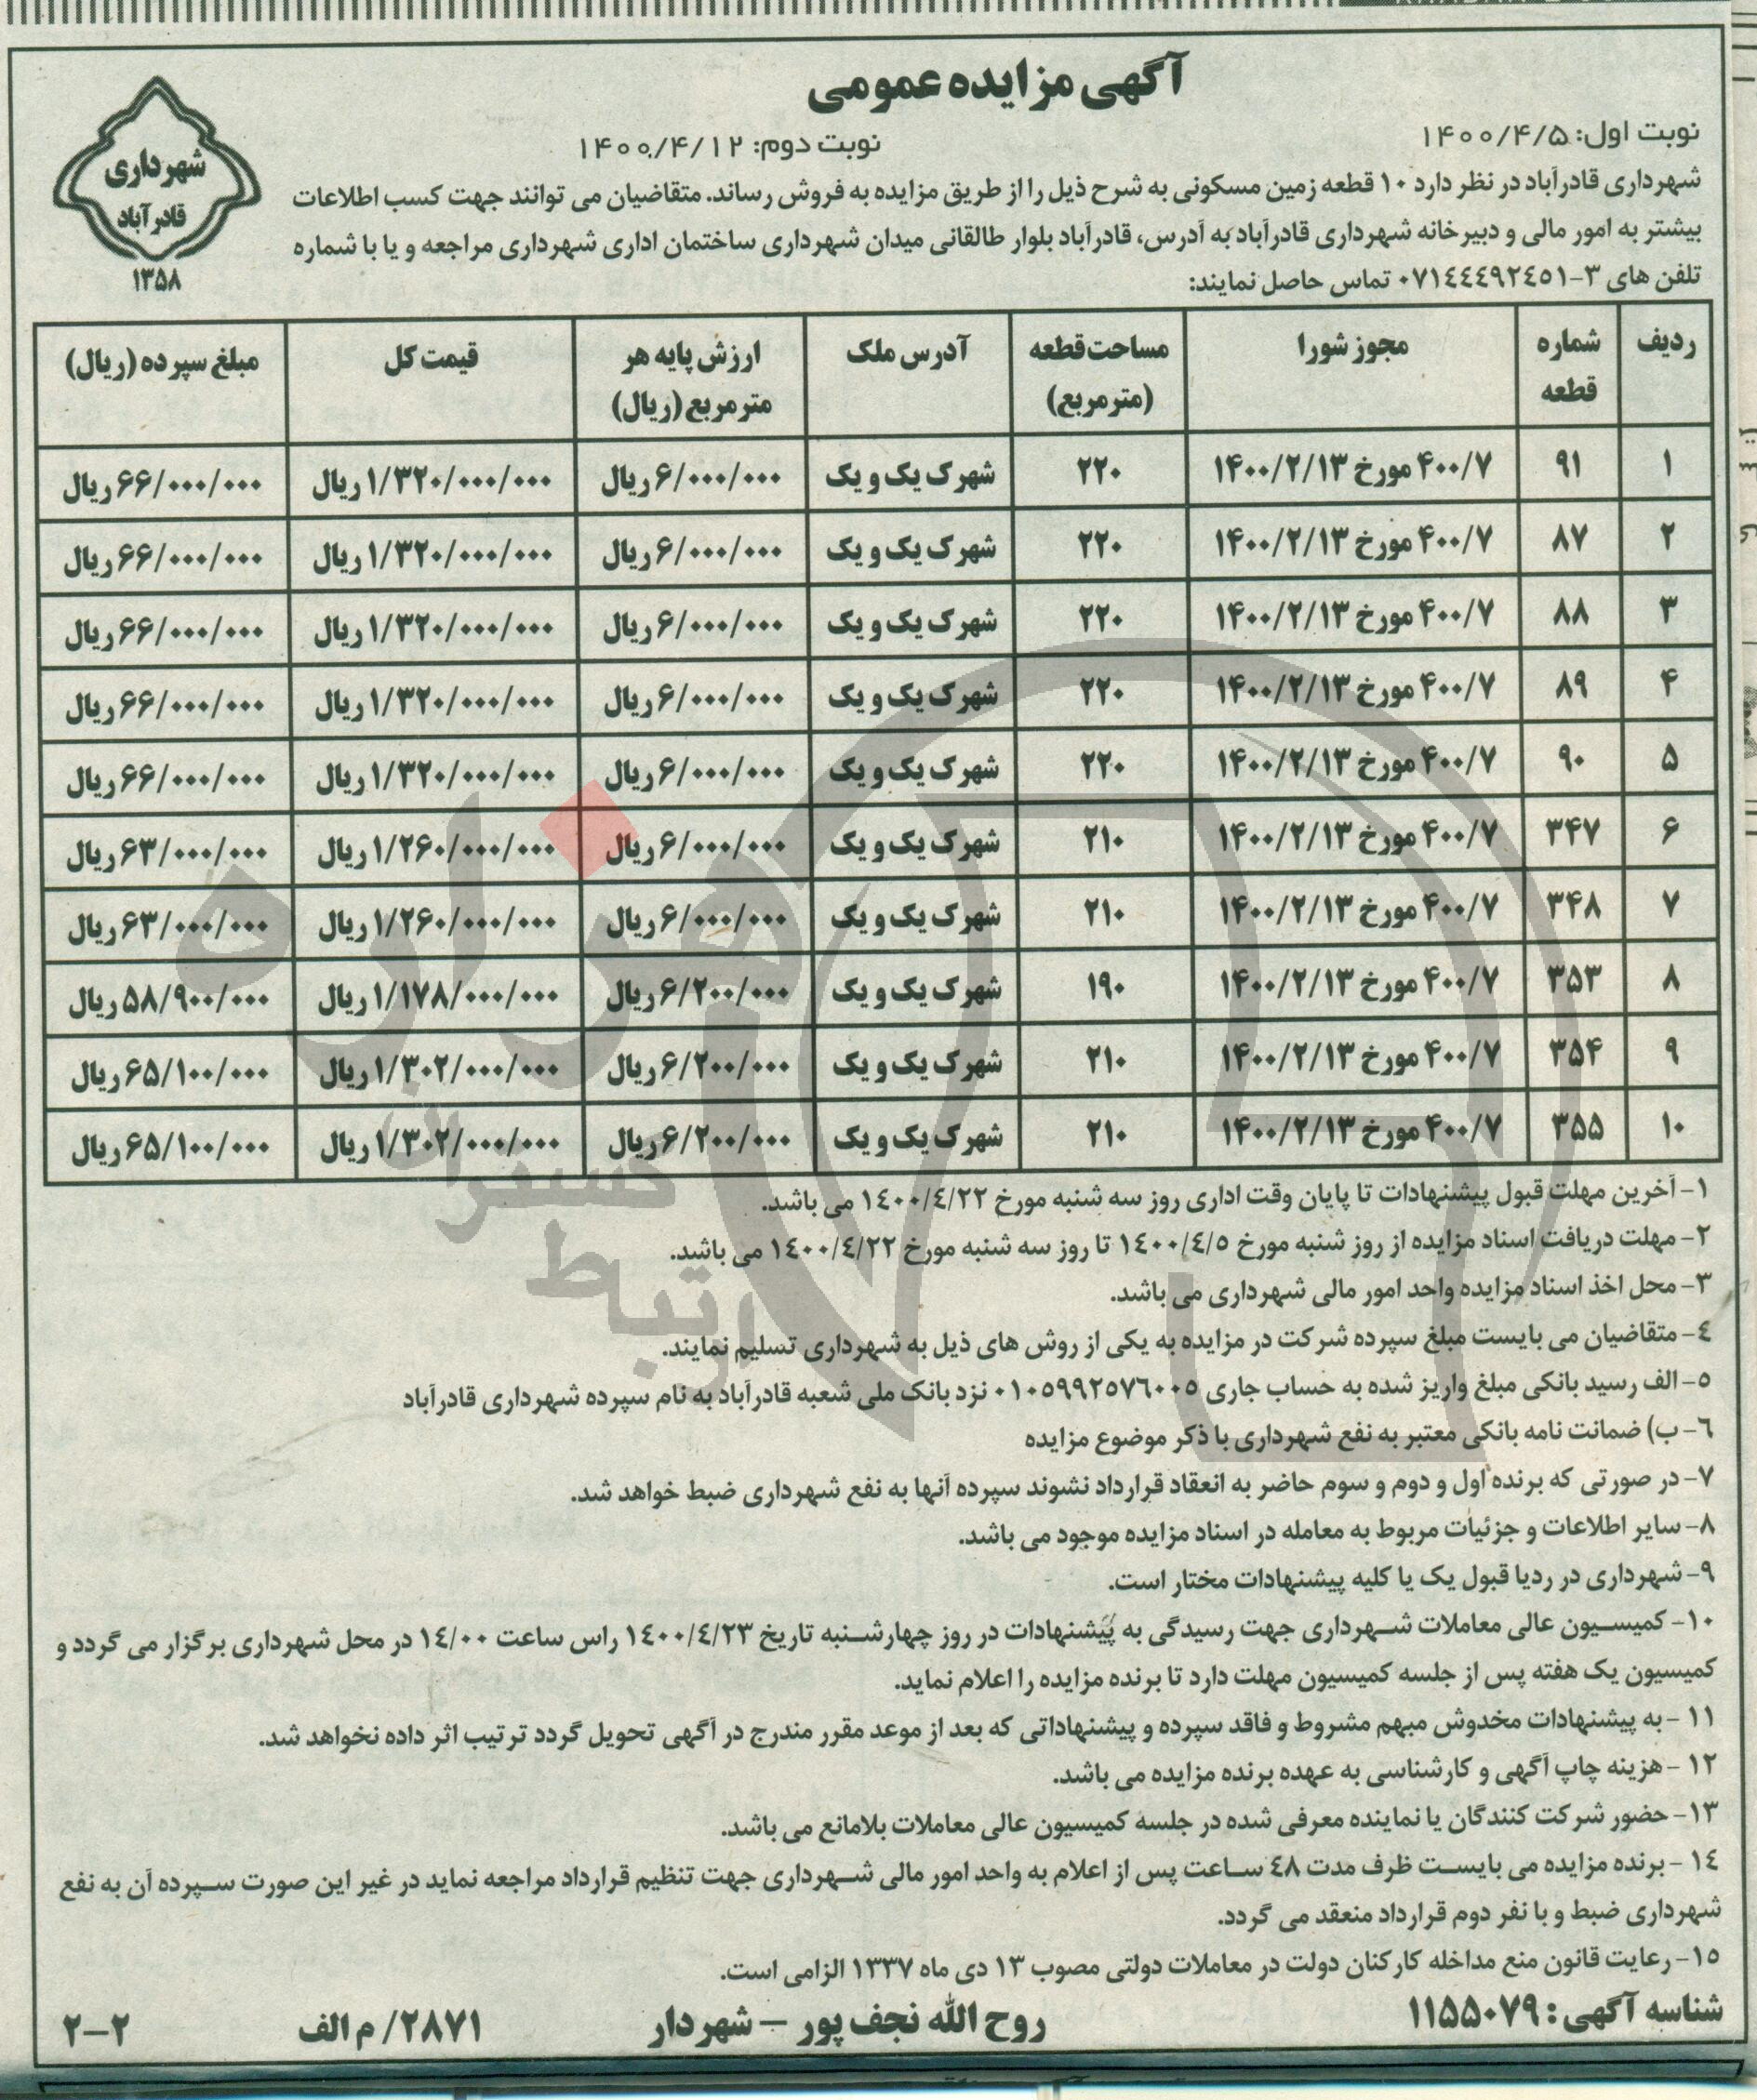 آگهی مزایده عمومی
نوبت اول: ۱۴۰۰/۴/۵
نوبت دوم: ۱۴۰۰/۴/۱۲
شهرداری
قادرآباد
۱۳۵۸
شهرداری قادرآباد در نظر دارد ۱۰ قطعه زمین مسکونی به شرح ذیل را از طریق مزایده به فروش رساند. متقاضیان می توانند جهت کسب اطلاعات
بیشتر به امور مالی و دبیرخانه شهرداری قادرآباد به آدرس، قادرآباد بلوار طالقانی میدان شهرداری ساختمان اداری شهرداری مراجعه و یا با شماره
تلفن های ۳-۰۷۱٤٤٤۹۲٤٥۱ تماس حاصل نمایند:
ردیف شماره قطعه مجوز شورا مساحت قطعه (مترمربع) آدرس ملک ارزش پایه هر مترمربع (ریال) قیمت کل مبلغ سپرده (ریال)
۱ ۹۱ ۴۰۰/۷ مورخ ۱۴۰۰/۲/۱۳ ۲۲۰ شهرک یک و یک ۶/۰۰۰/۰۰۰ ریال ۱/۳۲۰/۰۰۰/۰۰۰ ریال ۶۶/۰۰۰/۰۰۰ ریال
۲ ۸۷ ۴۰۰/۷ مورخ ۱۴۰۰/۲/۱۳ ۲۲۰ شهرک یک و یک ۶/۰۰۰/۰۰۰ ریال ۱/۳۲۰/۰۰۰/۰۰۰ ریال ۶۶/۰۰۰/۰۰۰ ریال
۳ ۸۸ ۴۰۰/۷ مورخ ۱۴۰۰/۲/۱۳ ۲۲۰ شهرک یک و یک ۶/۰۰۰/۰۰۰ ریال ۱/۳۲۰/۰۰۰/۰۰۰ ریال ۶۶/۰۰۰/۰۰۰ ریال
۴ ۸۹ ۴۰۰/۷ مورخ ۱۴۰۰/۲/۱۳ ۲۲۰ شهرک یک و یک ۶/۰۰۰/۰۰۰ ریال ۱/۳۲۰/۰۰۰/۰۰۰ ریال ۶۶/۰۰۰/۰۰۰ ریال
۵ ۹۰ ۴۰۰/۷ مورخ ۱۴۰۰/۲/۱۳ ۲۲۰ شهرک یک و یک ۶/۰۰۰/۰۰۰ ریال ۱/۳۲۰/۰۰۰/۰۰۰ ریال ۶۶/۰۰۰/۰۰۰ ریال
۶ ۳۴۷ ۴۰۰/۷ مورخ ۱۴۰۰/۲/۱۳ ۲۱۰ شهرک یک و یک ۶/۰۰۰/۰۰۰ ریال ۱/۲۶۰/۰۰۰/۰۰۰ ریال ۶۳/۰۰۰/۰۰۰ ریال
۷ ۳۴۸ ۴۰۰/۷ مورخ ۱۴۰۰/۲/۱۳ ۲۱۰ شهرک یک و یک ۶/۰۰۰/۰۰۰ ریال ۱/۲۶۰/۰۰۰/۰۰۰ ریال ۶۳/۰۰۰/۰۰۰ ریال
۸ ۳۵۳ ۴۰۰/۷ مورخ ۱۴۰۰/۲/۱۳ ۱۹۰ شهرک یک و یک ۶/۲۰۰/۰۰۰ ریال ۱/۱۷۸/۰۰۰/۰۰۰ ریال ۵۸/۹۰۰/۰۰۰ ریال
۹ ۳۵۴ ۴۰۰/۷ مورخ ۱۴۰۰/۲/۱۳ ۲۱۰ شهرک یک و یک ۶/۲۰۰/۰۰۰ ریال ۱/۳۰۲/۰۰۰/۰۰۰ ریال ۶۵/۱۰۰/۰۰۰ ریال
۱۰ ۳۵۵ ۴۰۰/۷ مورخ ۱۴۰۰/۲/۱۳ ۲۱۰ شهرک یک و یک ۶/۲۰۰/۰۰۰ ریال ۱/۳۰۲/۰۰۰/۰۰۰ ریال ۶۵/۱۰۰/۰۰۰ ریال
۱- آخرین مهلت قبول پیشنهادات تا پایان وقت اداری روز سه شنبه مورخ ۱٤۰۰/٤/۲۲ می باشد.
۲- مهلت دریافت اسناد مزایده از روز شنبه مورخ ۱٤۰۰/٤/٥ تا روز سه شنبه مورخ ۱٤۰۰/٤/۲۲ می باشد.
۳- محل اخذ اسناد مزایده واحد امور مالی شهرداری می باشد.
٤- متقاضیان می بایست مبلغ سپرده شرکت در مزایده به یکی از روش های ذیل به شهرداری تسلیم نمایند.
٥- الف رسید بانکی مبلغ واریز شده به حساب جاری ۰۱۰٥۹۹۲٥۷٦۰۰٥ نزد بانک ملی شعبه قادرآباد به نام سپرده شهرداری قادرآباد
٦- ب) ضمانت نامه بانکی معتبر به نفع شهرداری با ذکر موضوع مزایده
۷- در صورتی که برنده اول و دوم و سوم حاضر به انعقاد قرارداد نشوند سپرده آنها به نفع شهرداری ضبط خواهد شد.
۸- سایر اطلاعات و جزئیات مربوط به معامله در اسناد مزایده موجود می باشد.
۹- شهرداری در ردیا قبول یک یا کلیه پیشنهادات مختار است.
۱۰- کمیسیون عالی معاملات شهرداری جهت رسیدگی به پیشنهادات در روز چهارشنبه تاریخ ۱٤۰۰/٤/۲۳ راس ساعت ۱٤/۰۰ در محل شهرداری برگزار می گردد و
کمیسیون یک هفته پس از جلسه کمیسیون مهلت دارد تا برنده مزایده را اعلام نماید.
۱۱ - به پیشنهادات مخدوش مبهم مشروط و فاقد سپرده و پیشنهاداتی که بعد از موعد مقرر مندرج در آگهی تحویل گردد ترتیب اثر داده نخواهد شد.
۱۲ - هزینه چاپ آگهی و کارشناسی به عهده برنده مزایده می باشد.
۱۳- حضور شرکت کنندگان یا نماینده معرفی شده در جلسه کمیسیون عالی معاملات بلامانع می باشد.
۱٤ - برنده مزایده می بایست ظرف مدت ٤۸ ساعت پس از اعلام به واحد امور مالی شهرداری جهت تنظیم قرارداد مراجعه نماید در غیر این صورت سپرده آن به نفع
شهرداری ضبط و با نفر دوم قرارداد منعقد می گردد.
۱٥- رعایت قانون منع مداخله کارکنان دولت در معاملات دولتی مصوب ۱۳ دی ماه ۱۳۳۷ الزامی است.
شناسه آگهی: ۱۱۵۵۰۷۹
روح الله نجف پور - شهردار
۲۸۷۱/ م الف
۲-۲